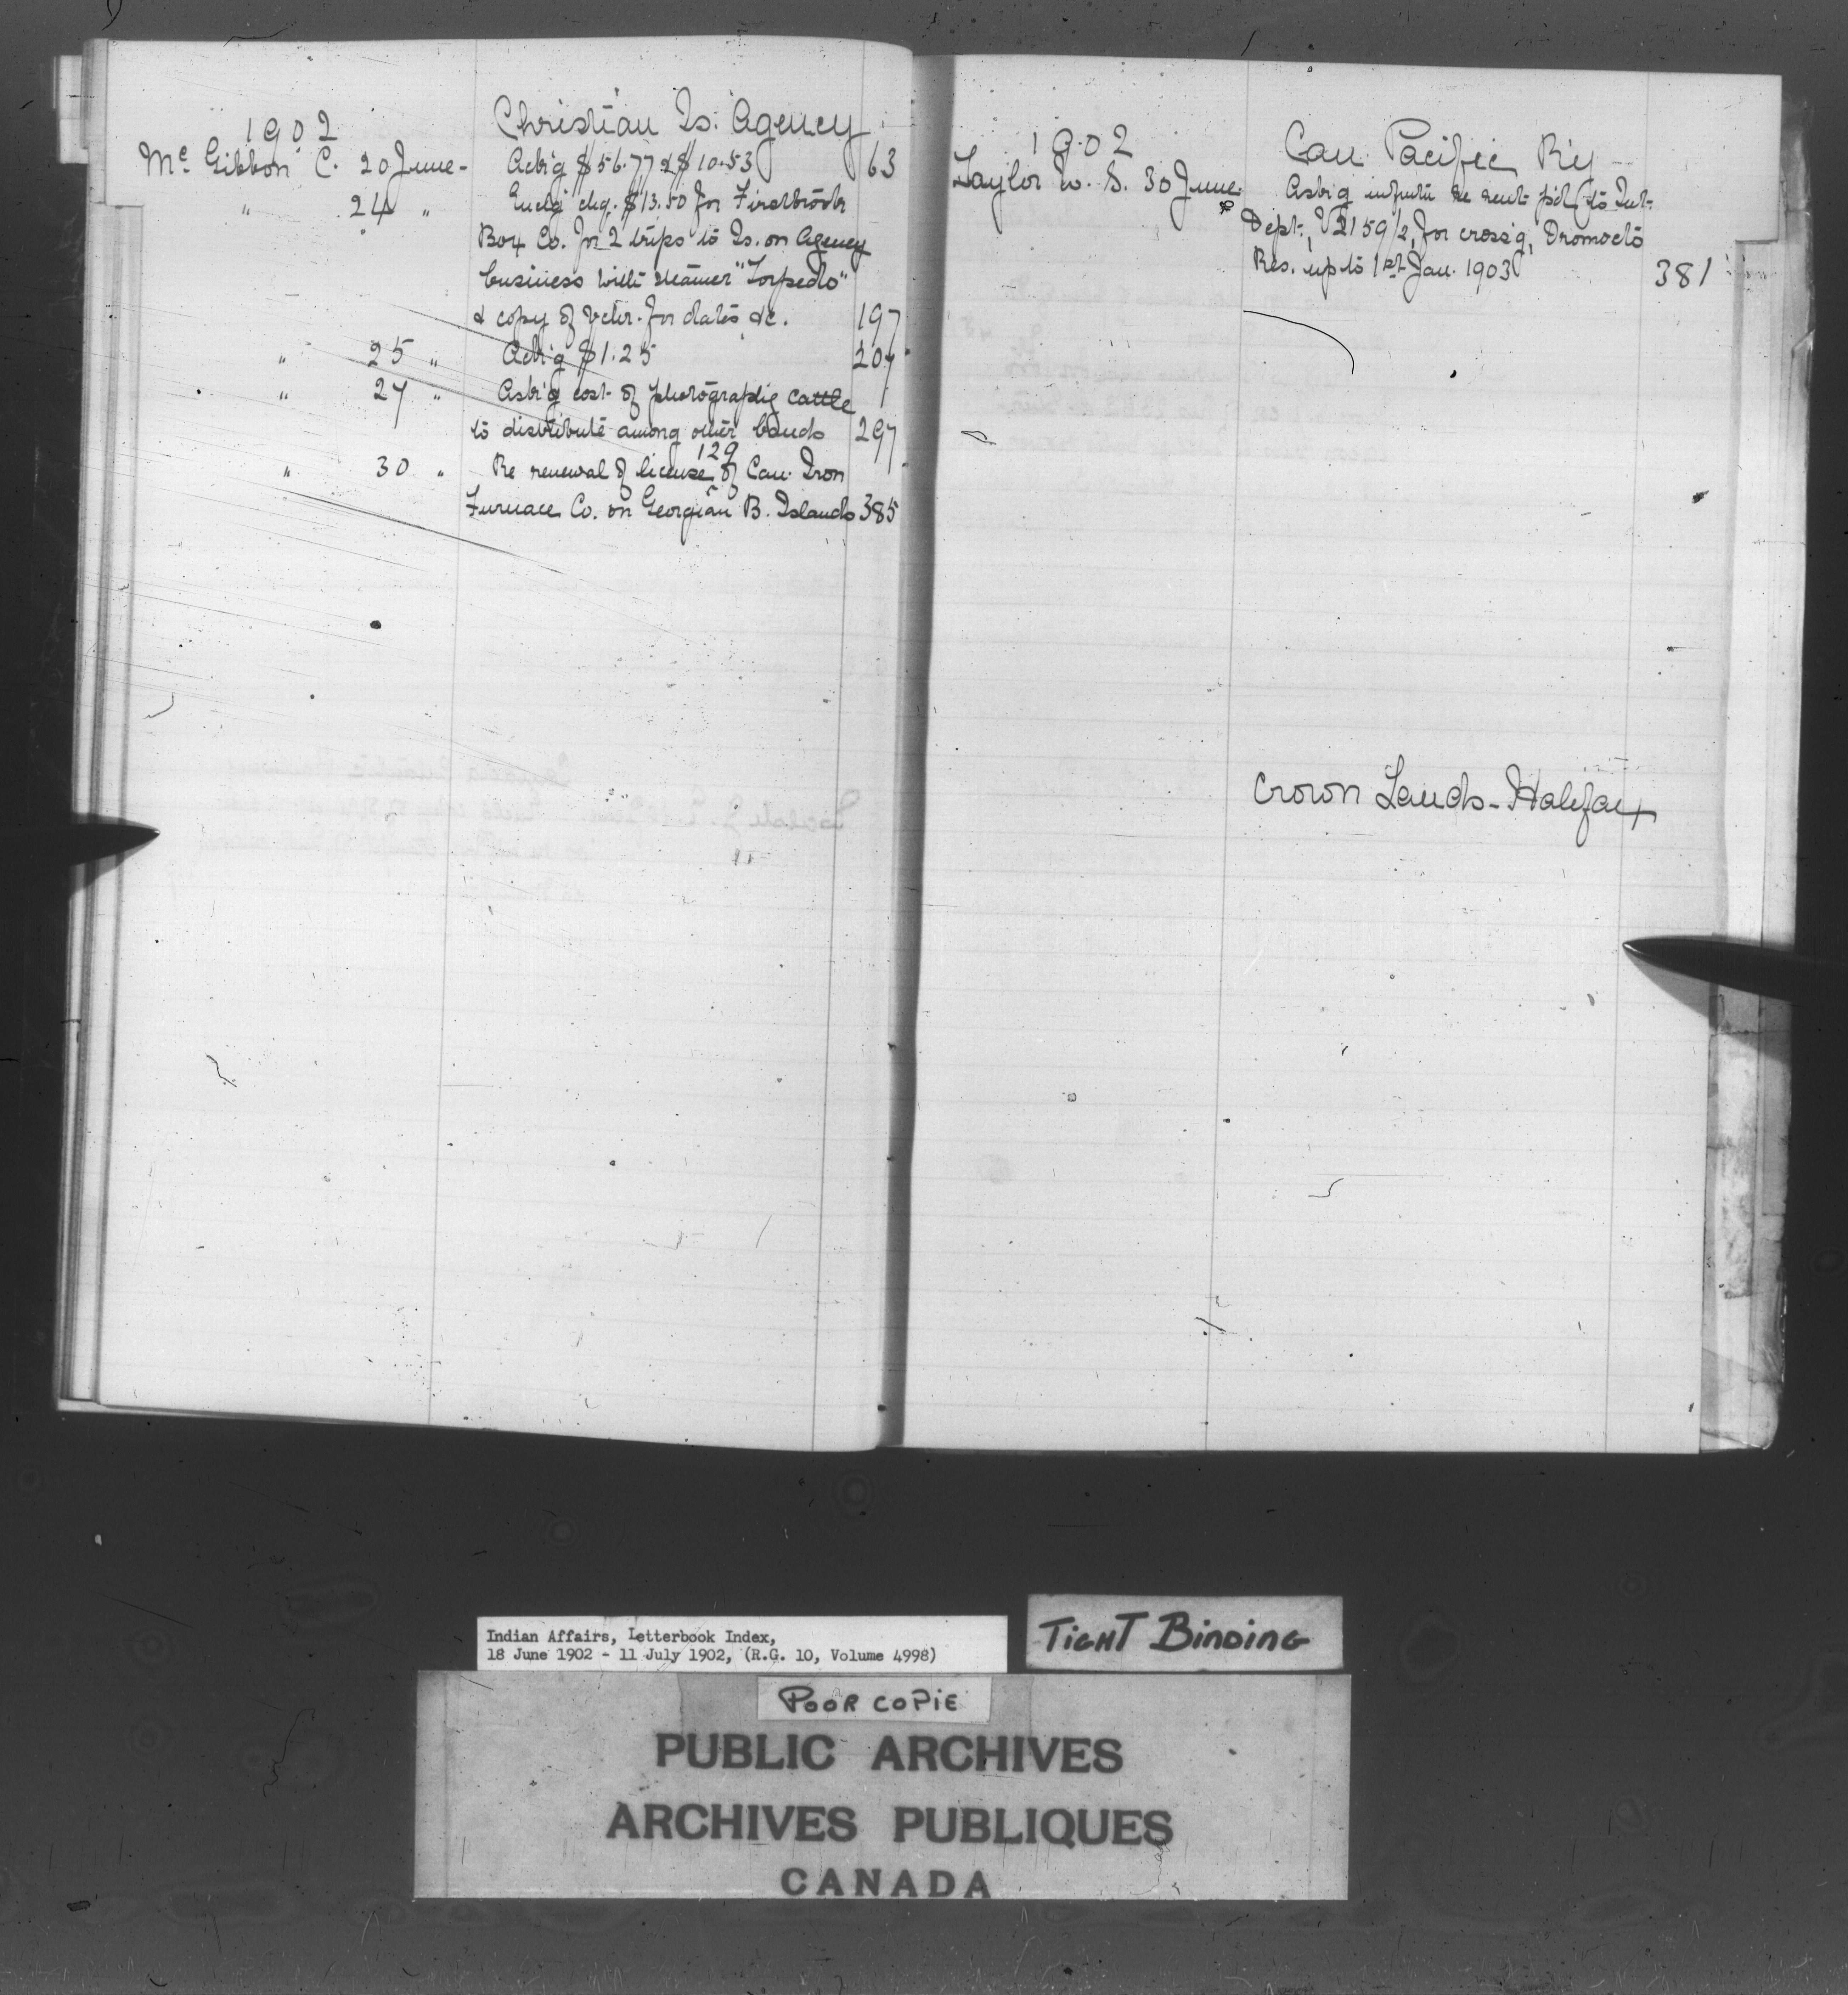 1902
Christian Is. Agency
Mc Gibbon C. 20 June - Ack'g $56.77 & $10.53 63
" 24 " Encl'g chq. $13.50 for Firstbrook
Box Co. for 2 trips to Is. on Agency
business with steamer "Torpedo"
& copy of vchr. for dates &c. 197
" 25 " Ack'g $1.25 207
" 27 " Ask'g cost of photographig cattle
to distribute among other bands 297
129
" 30 " Re renewal of license of Can. Iron
Furnace Co. on Georgian B. Islands 385
1902
Can. Pacific R'y
Taylor W. S. 30 June Ask'g info re rent p'd to Int.
Dept., for cross'g, Oromocto
Res. up to 1st Jan. 1903 381
Crown Lands - Halifax
Indian Affairs, Letterbook Index,
18 June 1902 - 11 July 1902, (R.G. 10, Volume 4998)
TIGHT BINDING
POOR COPIE
PUBLIC ARCHIVES
ARCHIVES PUBLIQUES
CANADA